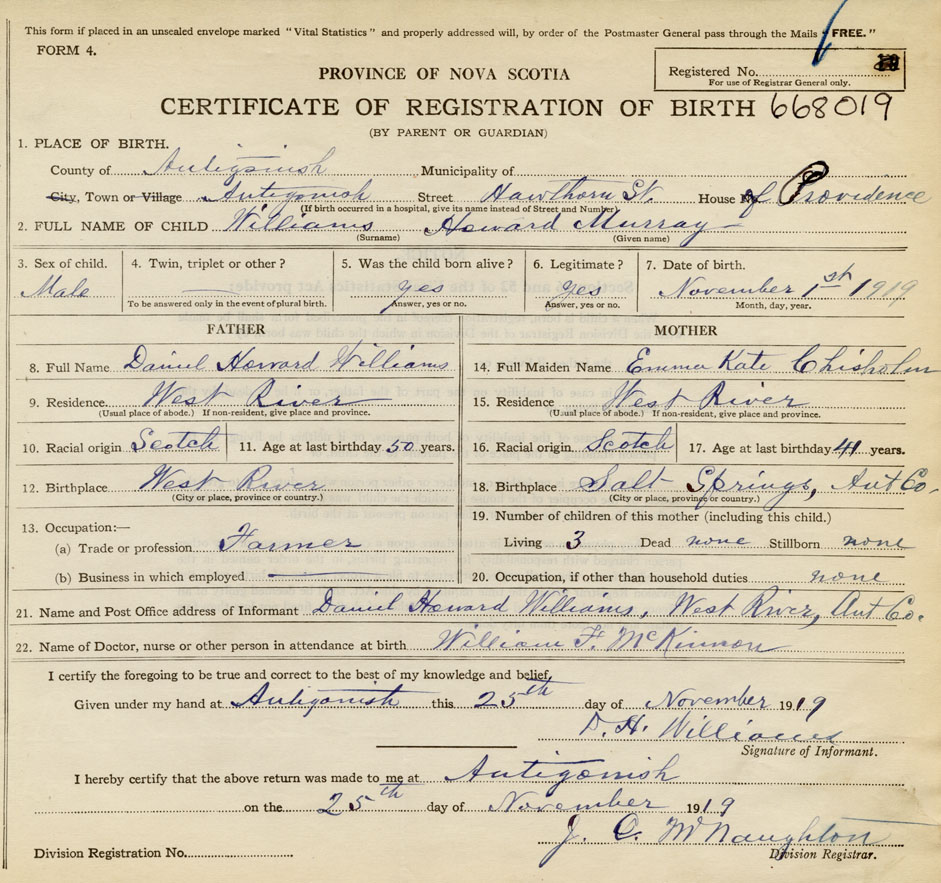 This form if placed in an unsealed envelope marked "Vital Statistics" and properly addressed will, by order of the Postmaster General pass through the Mails "FREE."
FORM 4.
Registered No.
For use of Registrar General only.
PROVINCE OF NOVA SCOTIA
CERTIFICATE OF REGISTRATION OF BIRTH 668019
(BY PARENT OR GUARDIAN)
1. PLACE OF BIRTH.
County of Antigonish Municipality of
City, Town or Village Antigonish Street Hawthorn St. House of Providence
(If birth occurred in a hospital, give its name instead of Street and Number)
2. FULL NAME OF CHILD Williams Howard Murray
(Surname) (Given name)
3. Sex of child. 4. Twin, triplet or other? 5. Was the child born alive? 6. Legitimate? 7. Date of birth.
Male yes yes November 1st 1919
To be answered only in the event of plural birth. Answer, yes or no. Answer, yes or no. Month, day, year.
FATHER MOTHER
8. Full Name Daniel Howard Williams 14. Full Maiden Name Emma Kate Chisholm
9. Residence West River 15. Residence West River
(Usual place of abode.) If non-resident, give place and province. (Usual place of abode.) If non-resident, give place and province.
10. Racial origin Scotch 11. Age at last birthday 50 years. 16. Racial origin Scotch 17. Age at last birthday 41 years.
12. Birthplace West River 18. Birthplace Salt Springs, Ant Co.
(City or place, province or country.) (City or place, province or country.)
13. Occupation:— 19. Number of children of this mother (including this child.)
(a) Trade or profession Farmer Living 3 Dead none Stillborn none
(b) Business in which employed 20. Occupation, if other than household duties none
21. Name and Post Office address of Informant Daniel Howard Williams, West River, Ant Co.
22. Name of Doctor, nurse or other person in attendance at birth William F. McKinnon
I certify the foregoing to be true and correct to the best of my knowledge and belief,
Given under my hand at Antigonish this 25th day of November 1919
D. H. Williams
Signature of Informant.
I hereby certify that the above return was made to me at Antigonish
on the 25th day of November 1919
J. C. McNaughton
Division Registration No. Division Registrar.